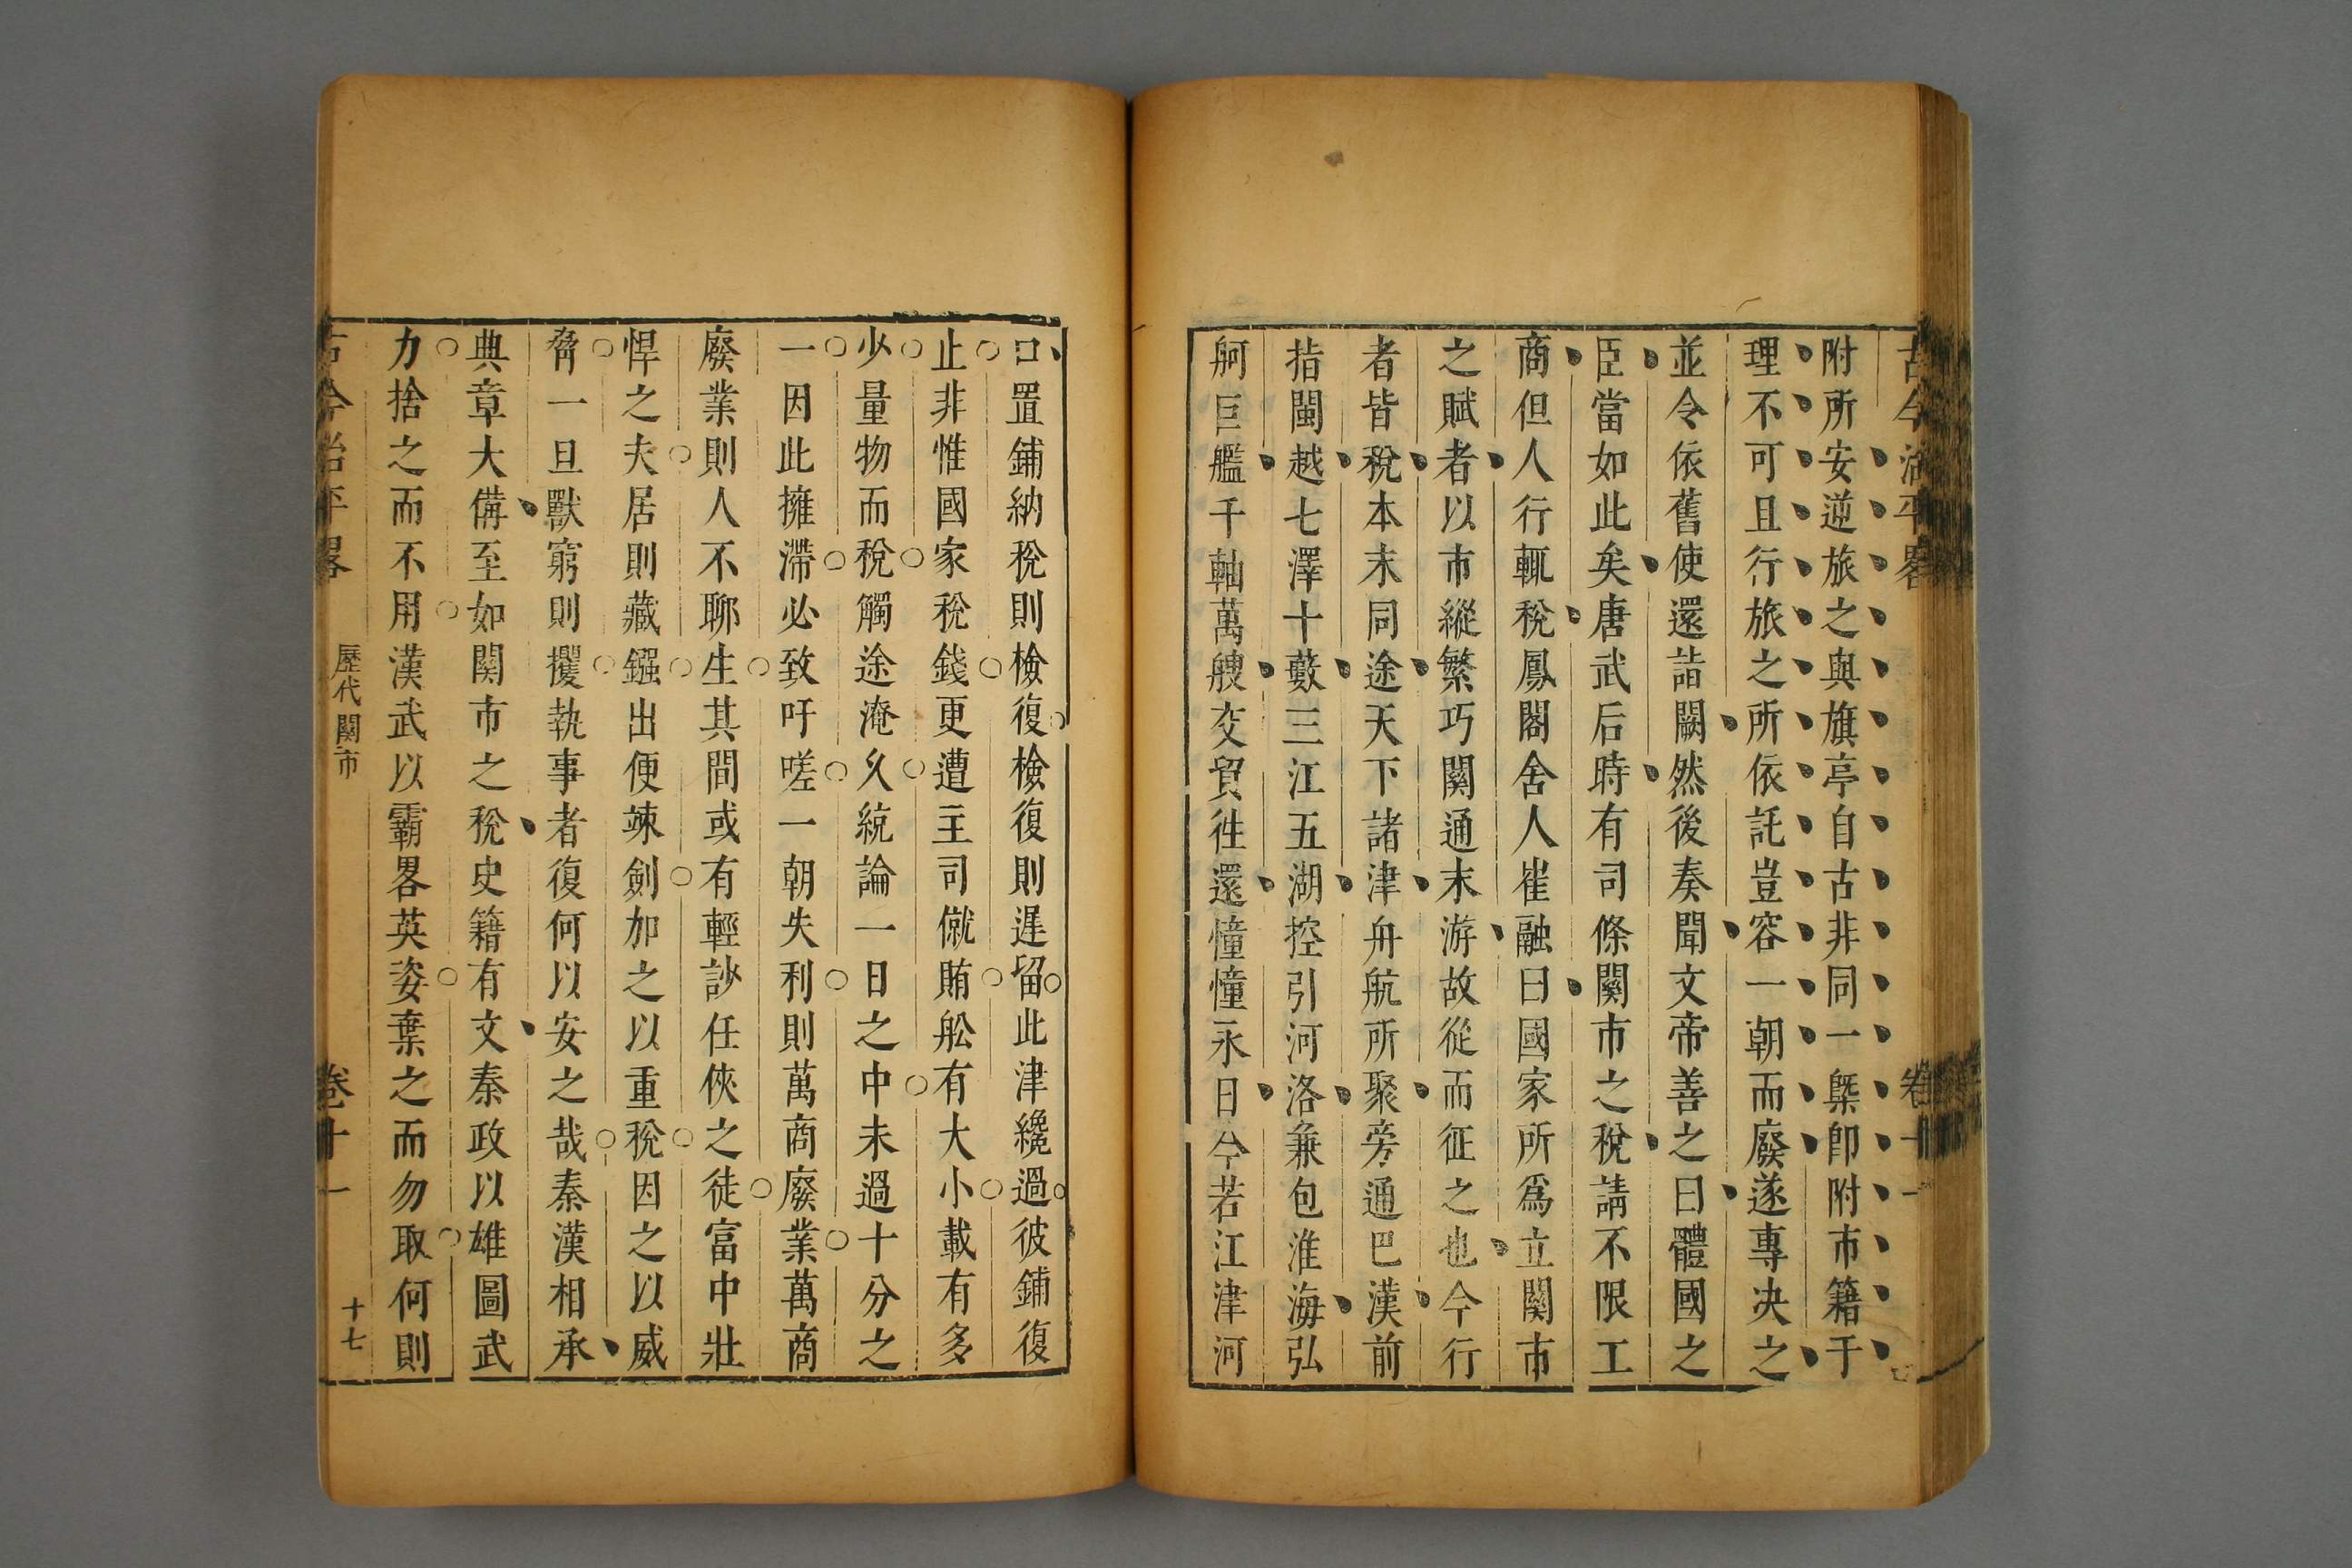 古今治平畧 卷十一
附所安逆旅之與旗亭自古非同一槩卽附市籍于
理不可且行旅之所依託豈容一朝而廢遂專决之
並令依舊使還詣闕然後奏聞文帝善之曰體國之
臣當如此矣唐武后時有司條關市之稅請不限工
商但人行輒稅鳳閣舍人崔融曰國家所爲立關市
之賦者以市縱繁巧關通末游故從而征之也今行
者皆稅本末同途天下諸津舟航所聚旁通巴漢前
指閩越七澤十藪三江五湖控引河洛兼包淮海弘
舸巨艦千軸萬艘交貿徃還憧憧永日今若江津河
口置鋪納稅則檢復檢復則遲留此津纔過彼鋪復
止非惟國家稅錢更遭主司僦賄舩有大小載有多
少量物而稅觸途淹久統論一日之中未過十分之
一因此擁滯必致吁嗟一朝失利則萬商廢業萬商
廢業則人不聊生其間或有輕訬任俠之徒富中壯
悍之夫居則藏鏹出便竦劍加之以重稅因之以威
脅一旦獸窮則攫執事者復何以安之哉秦漢相承
典章大備至如關市之稅史籍有文秦政以雄圖武
力捨之而不用漢武以霸畧英姿棄之而勿取何則
古今治平畧 歷代關市 卷十一 十七